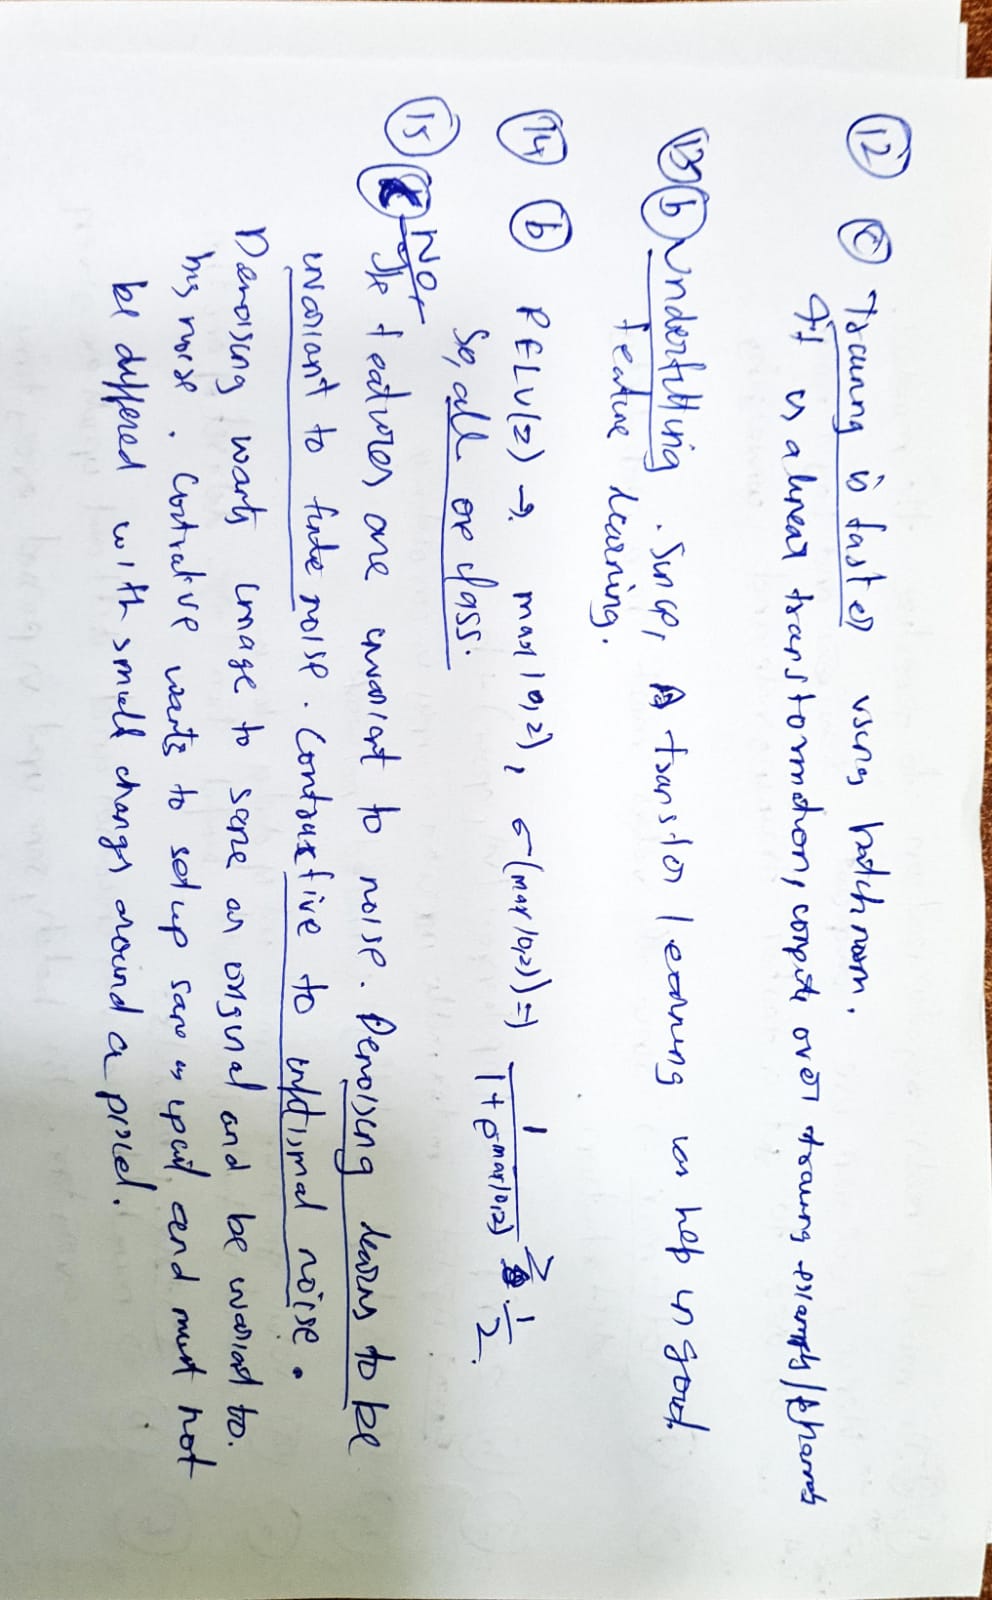 (12) (c) Training is faster using batch norm.
It is a linear transformation, compute over training example/channels
(13) (b) Underfitting. Since, A transfer learning can help in good
feature learning.
(14) (b) RELU(z) → max(0,z), σ(max(0,z)) => 1/(1+e^max(0,z)) ≥ 1/2.
So, all or class.
(15) Not
The features are invariant to noise. Denoising learns to be
invariant to finite noise. Contractive to infitismal noise.
Denoising wants image to same as original and be variant to.
noise. Contrative wants to setup same as and must not
be differed with small changes around a pixel.